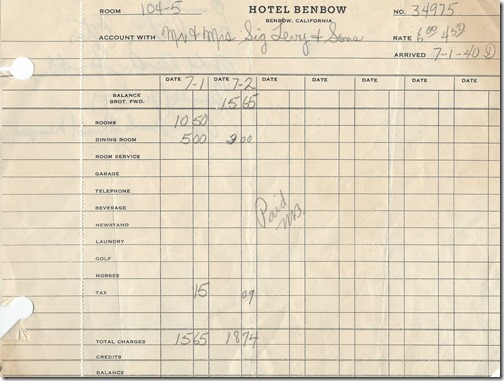 ROOM 104-5 HOTEL BENBOW NO. 34975
BENBOW, CALIFORNIA
ACCOUNT WITH Mr & Mrs Sig Levy & Sons RATE 6 00 4 50
ARRIVED 7-1-40
DATE 7-1 DATE 7-2 DATE DATE DATE DATE DATE
BALANCE BROT. FWD. 15 65
ROOMS 10 50
DINING ROOM 5 00 3 00
ROOM SERVICE
GARAGE
TELEPHONE
BEVERAGE
Paid
NEWSTAND
LAUNDRY
GOLF
HORSES
TAX 15 09
TOTAL CHARGES 15 65 18 74
CREDITS
BALANCE